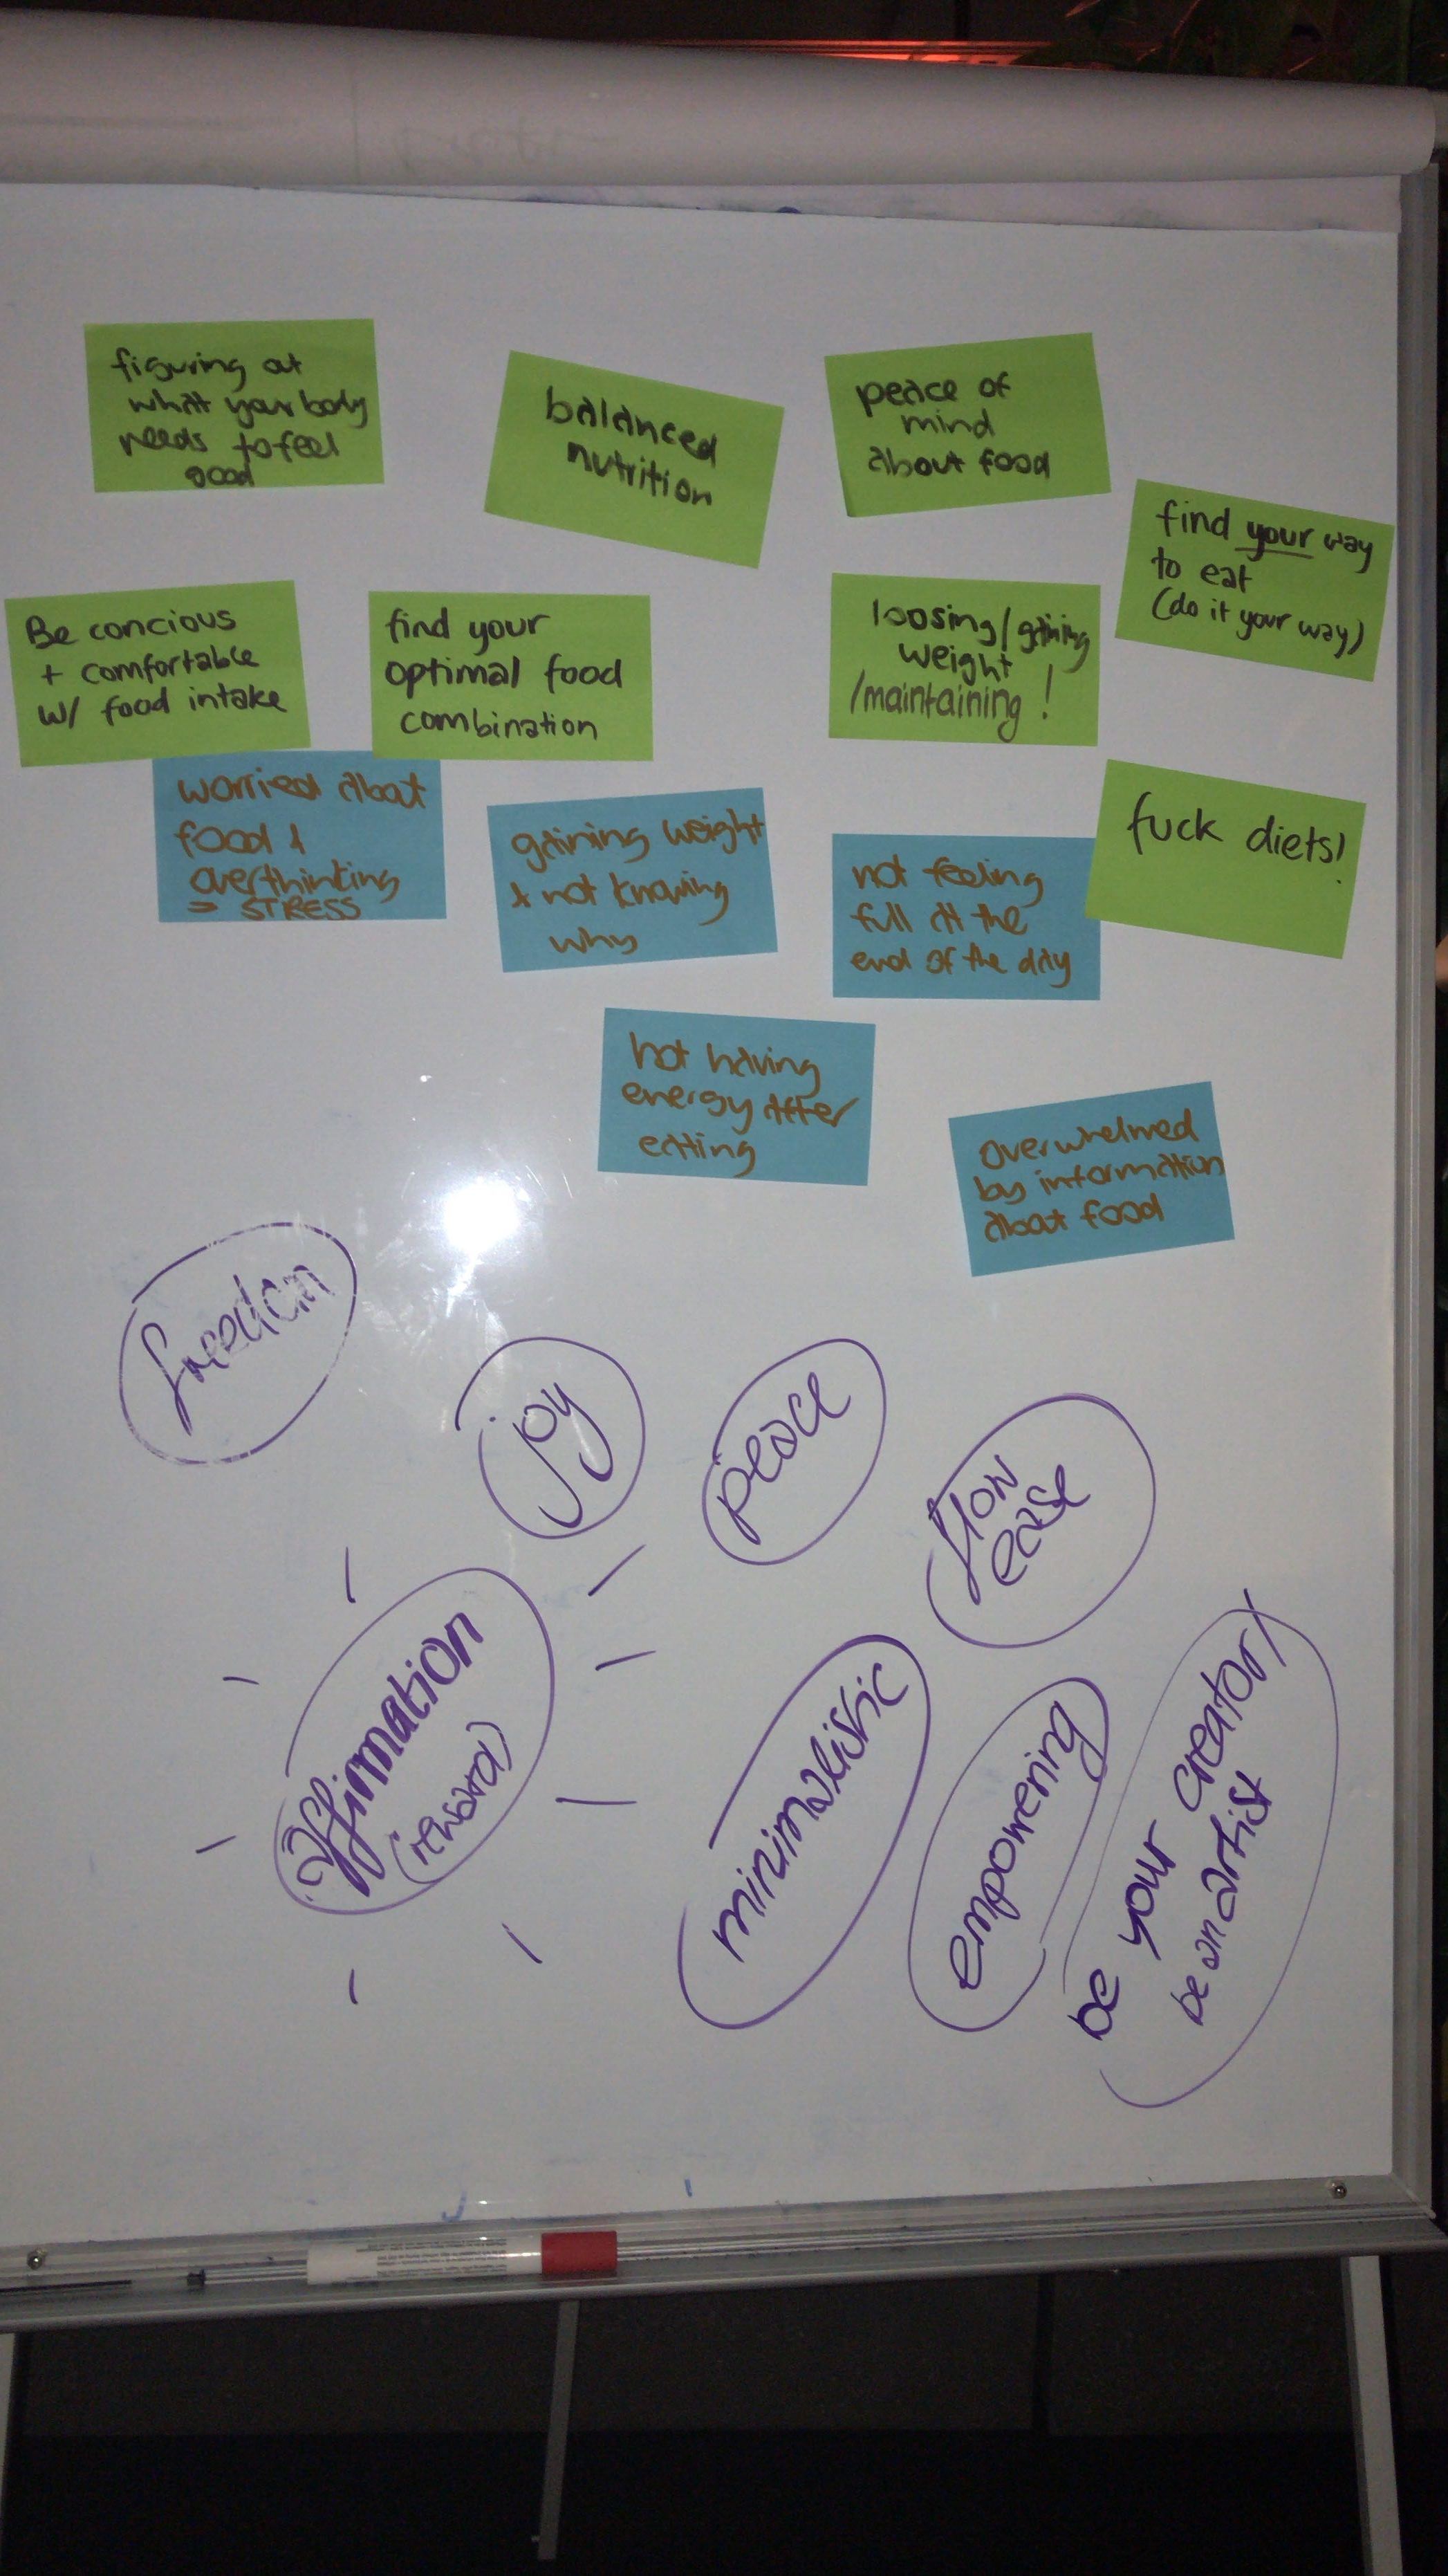 figuring out
what your body
needs to feel
good
balanced
nutrition
peace of
mind
about food
find your way
to eat
(do it your way)
Be concious
+ comfortable
w/ food intake
find your
optimal food
combination
loosing/gaining
weight
/maintaining!
fuck diets!
worried about
food +
overthinking
= STRESS
gaining weight
+ not knowing
why
not feeling
full at the
end of the day
not having
energy after
eating
overwhelmed
by information
about food
freedom
joy
peace
flow
ease
affirmation
(reward)
minimalistic
empowering
be your creator
be an artist